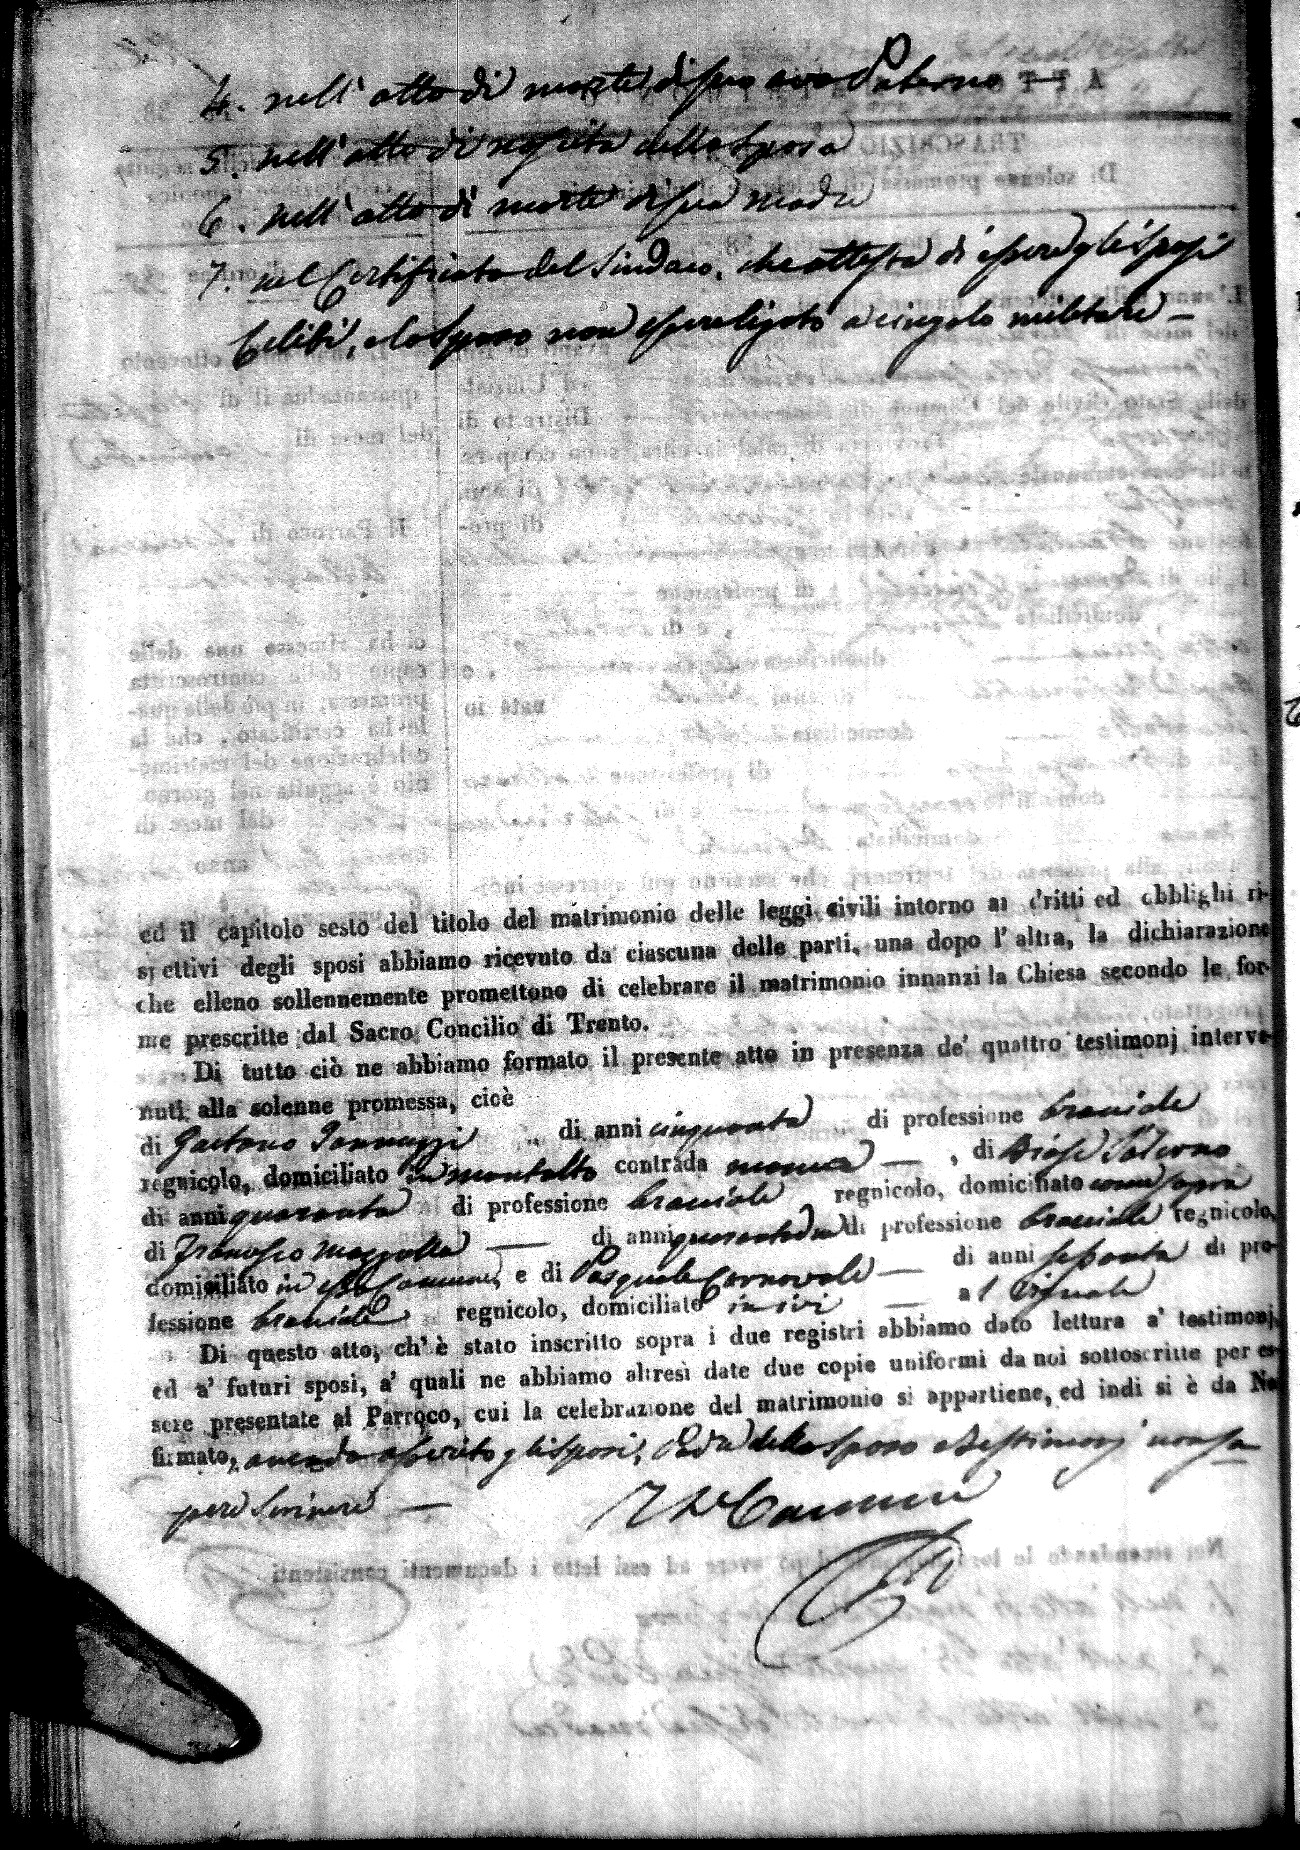 4. nell' atto di morte di suo avo Paterno —
5. nell' atto di nascita della sposa
6. nell' atto di morte di sua madre
7. nel Certificato del Sindaco, che attesta di essere gli sposi
celibi, e lo sposo non essere ligato a vincolo militare —
ed il capitolo sesto del titolo del matrimonio delle leggi civili intorno ai dritti ed obblighi ri-
spettivi degli sposi abbiamo ricevuto da ciascuna delle parti, una dopo l' altra, la dichiarazione
che elleno sollennemente promettono di celebrare il matrimonio innanzi la Chiesa secondo le for-
me prescritte dal Sacro Concilio di Trento.
Di tutto ciò ne abbiamo formato il presente atto in presenza de' quattro testimonj interve-
nuti alla solenne promessa, cioè
di Gaetano Iannuzzi di anni cinquanta di professione bracciale
regnicolo, domiciliato in Montalto contrada — , di Salerno
di anni quaranta di professione bracciale regnicolo, domiciliato come sopra
di Francesco Mazzulla — di anni quarantadue di professione bracciale regnicolo,
domiciliato in esso Comune, e di Pasquale Carnovale — di anni sessanta di pro-
fessione bracciale regnicolo, domiciliato in ivi —
Di questo atto, ch' è stato inscritto sopra i due registri abbiamo dato lettura a' testimonj,
ed a' futuri sposi, a' quali ne abbiamo altresì date due copie uniformi da noi sottoscritte per es-
sere presentate al Parroco, cui la celebrazione del matrimonio si appartiene, ed indi si è da No
firmato, avendo asserito gli sposi, della sposa e testimonj non sa-
pere scrivere —